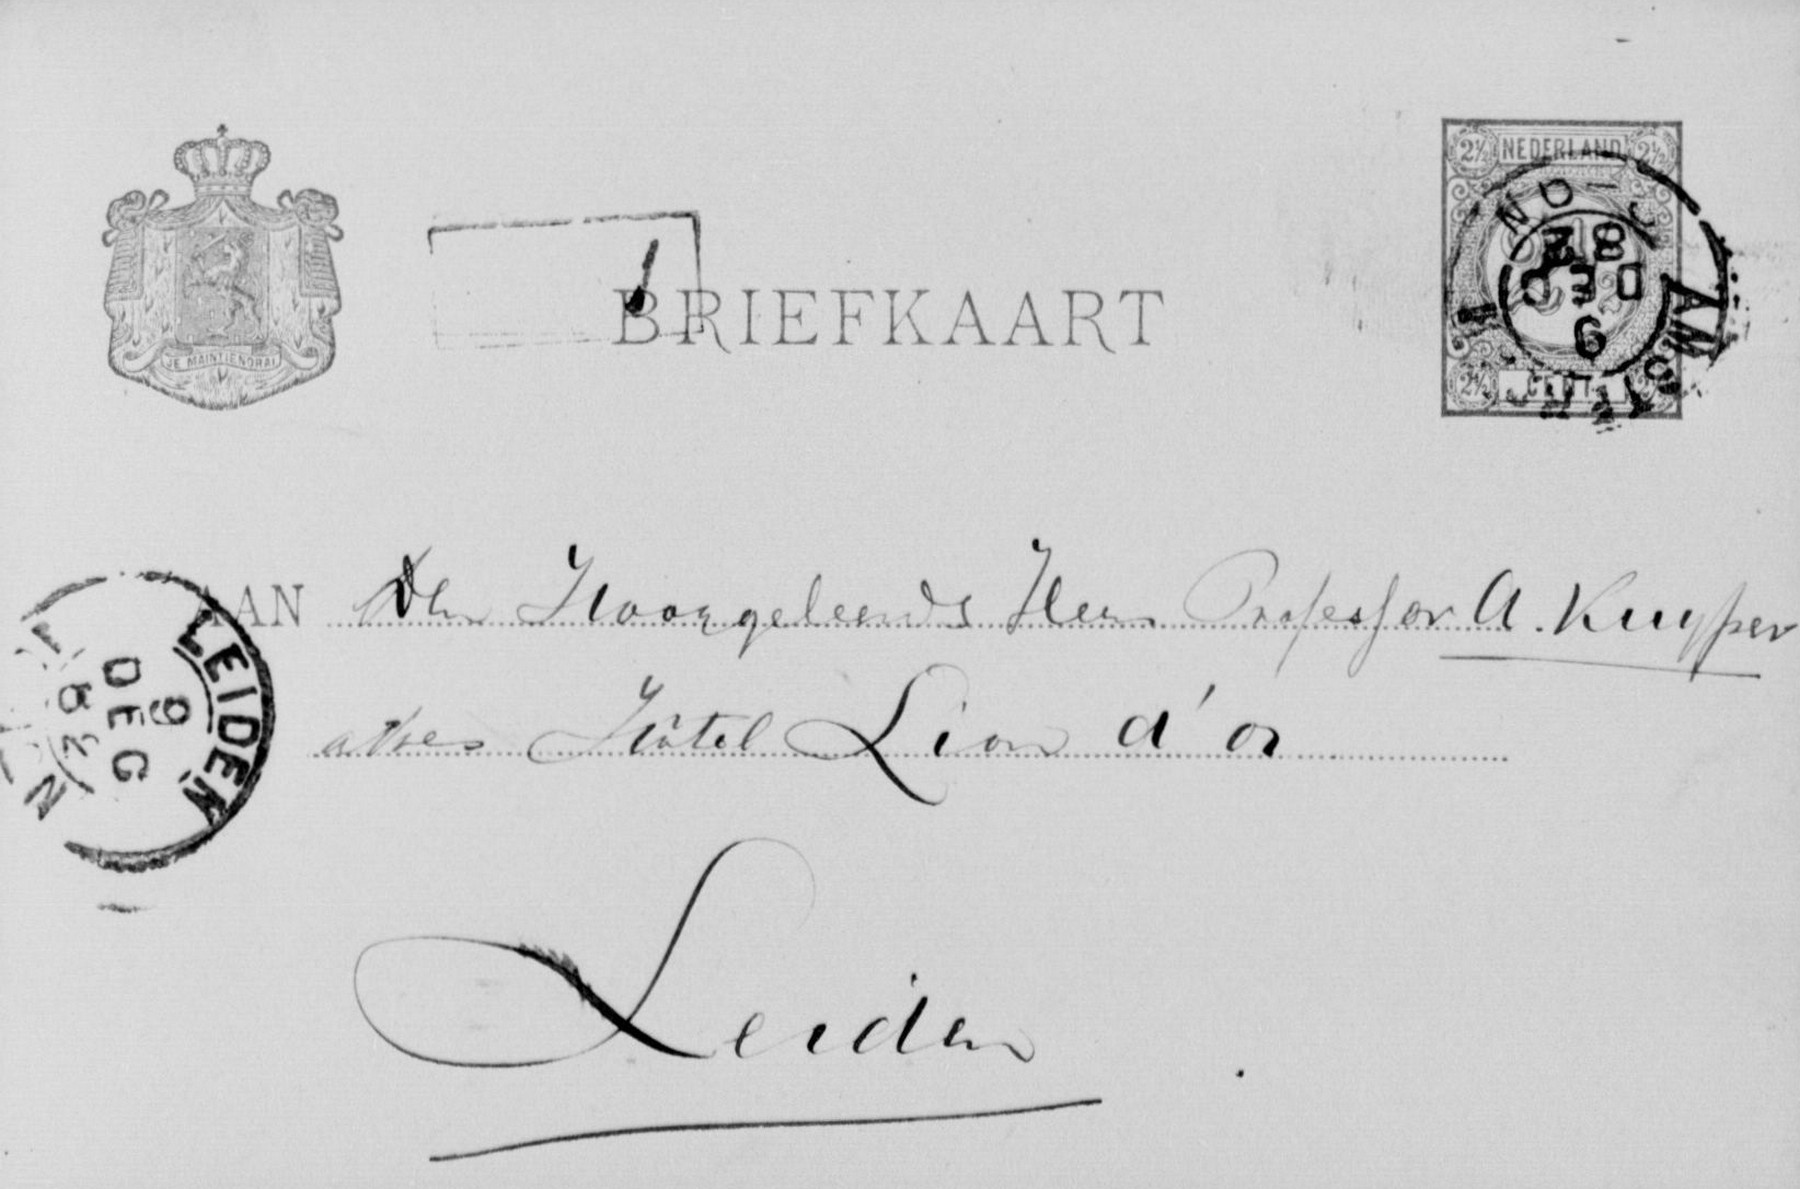 2½ NEDERLAND 2½
JE MAINTIENDRAI
1
BRIEFKAART
2½ CENT
AMSTERDAM
9 DEC
LEIDEN
9 DEC
AAN Den Hooggeleerde Heer Professor A. Kuyper
adres Hôtel Lion d'or
Leiden